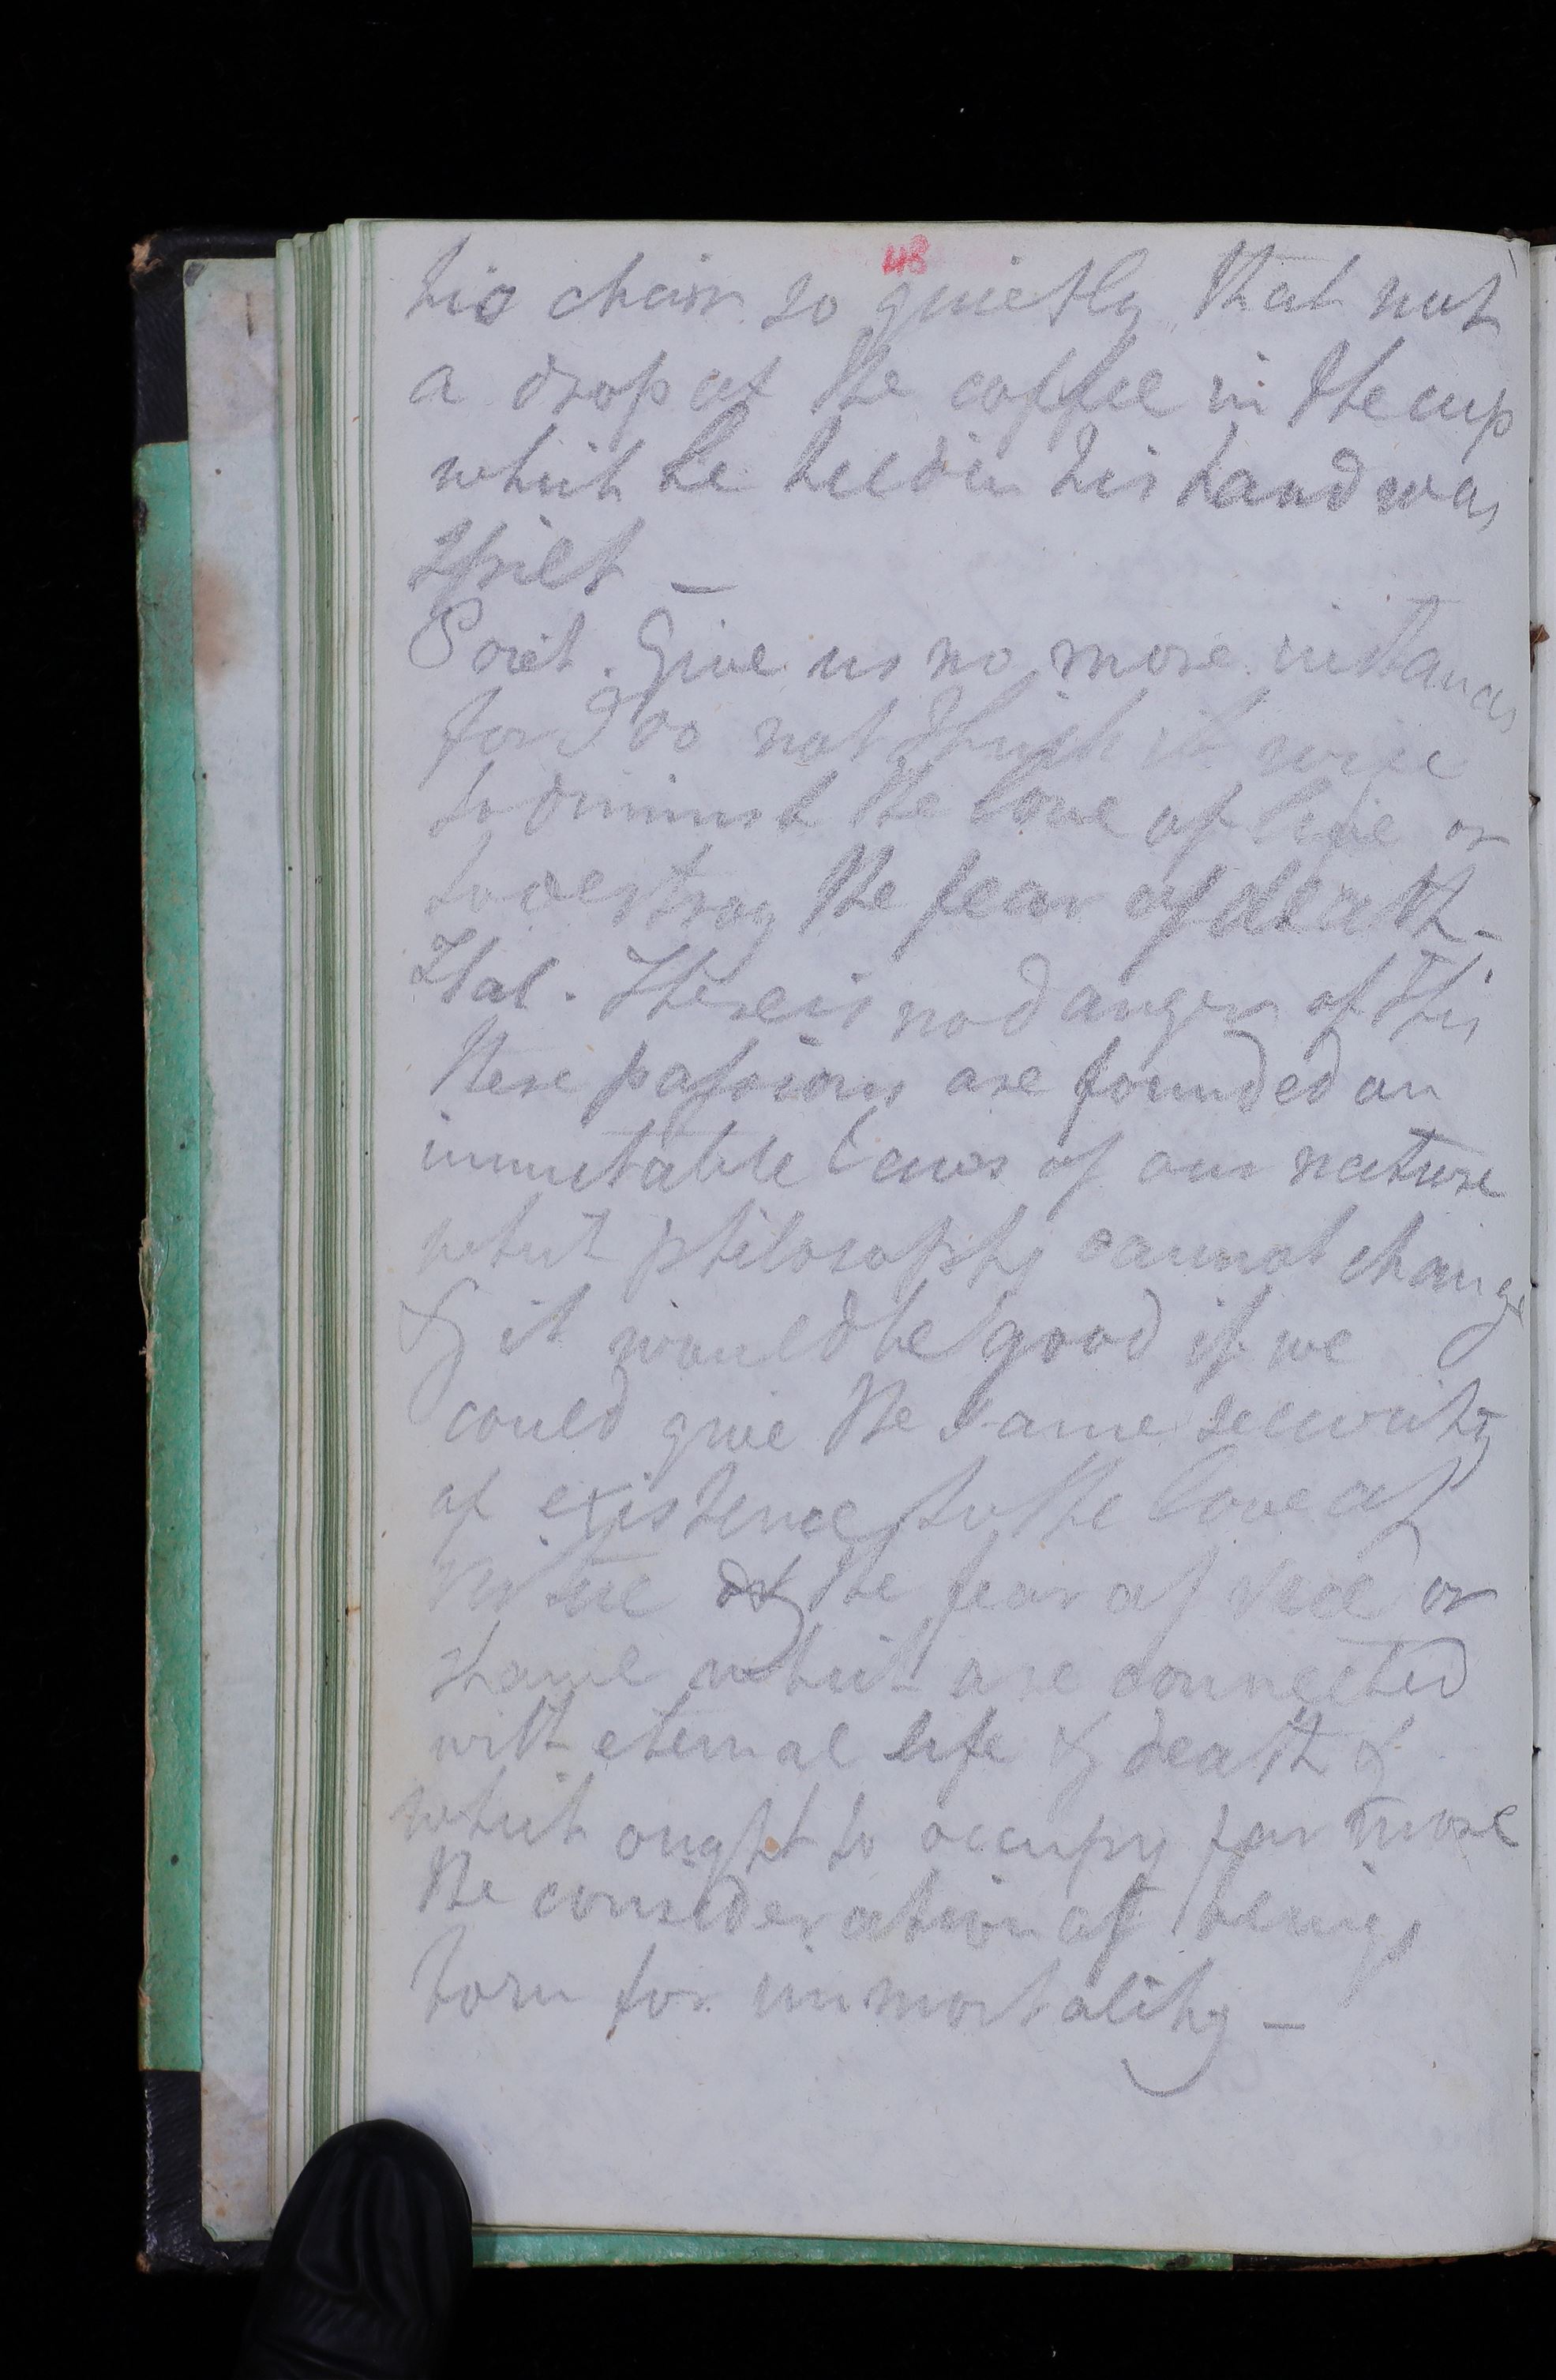 48
his chair so quietly that not
a drop of the coffee in the cup
which he held in his hand was
spilt –
Poiet. Give us no more instances
for I do not think it wise
to diminish the love of life or
to destroy the fear of death –
Hal. There is no danger of this
these passions are founded on
immutable laws of our nature
which philosophy cannot change
& it would be good if we
could give the same security
of existence to the love of
virtue & the fear of vice or
shame which are connected
with eternal life & death &
which ought to occupy far more
the consideration of beings
born for immortality –